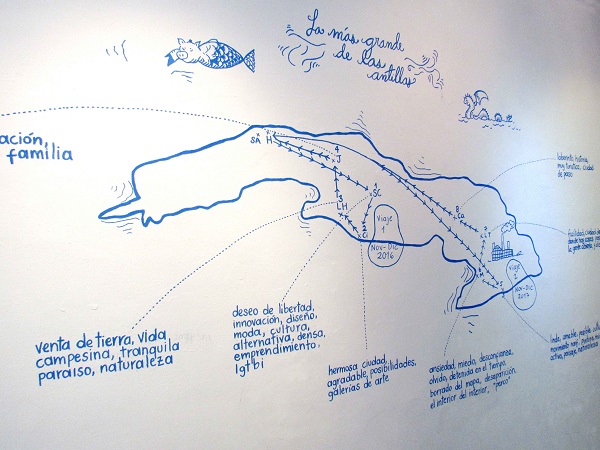 La más grande
de las
antillas
ación,
familia
SA H
4
J
3
LH
1
SC
2
Ci
Viaje
1
Nov-Dic
2016
Ca
Viaje
2
Nov-Dic
2017
laberinto, historia,
muy turística, ciudad
de paso
venta de tierra, vida
campesina, tranquila
paraíso, naturaleza
deseo de libertad,
innovación, diseño,
moda, cultura,
alternativa, densa,
emprendimiento,
lgtbi
hermosa ciudad,
agradable, posibilidades,
galerías de arte
ansiedad, miedo, desconfianza,
olvido, detenida en el tiempo,
borrado del mapa, desaparición,
el interior del interior, "perro"
linda, amable,